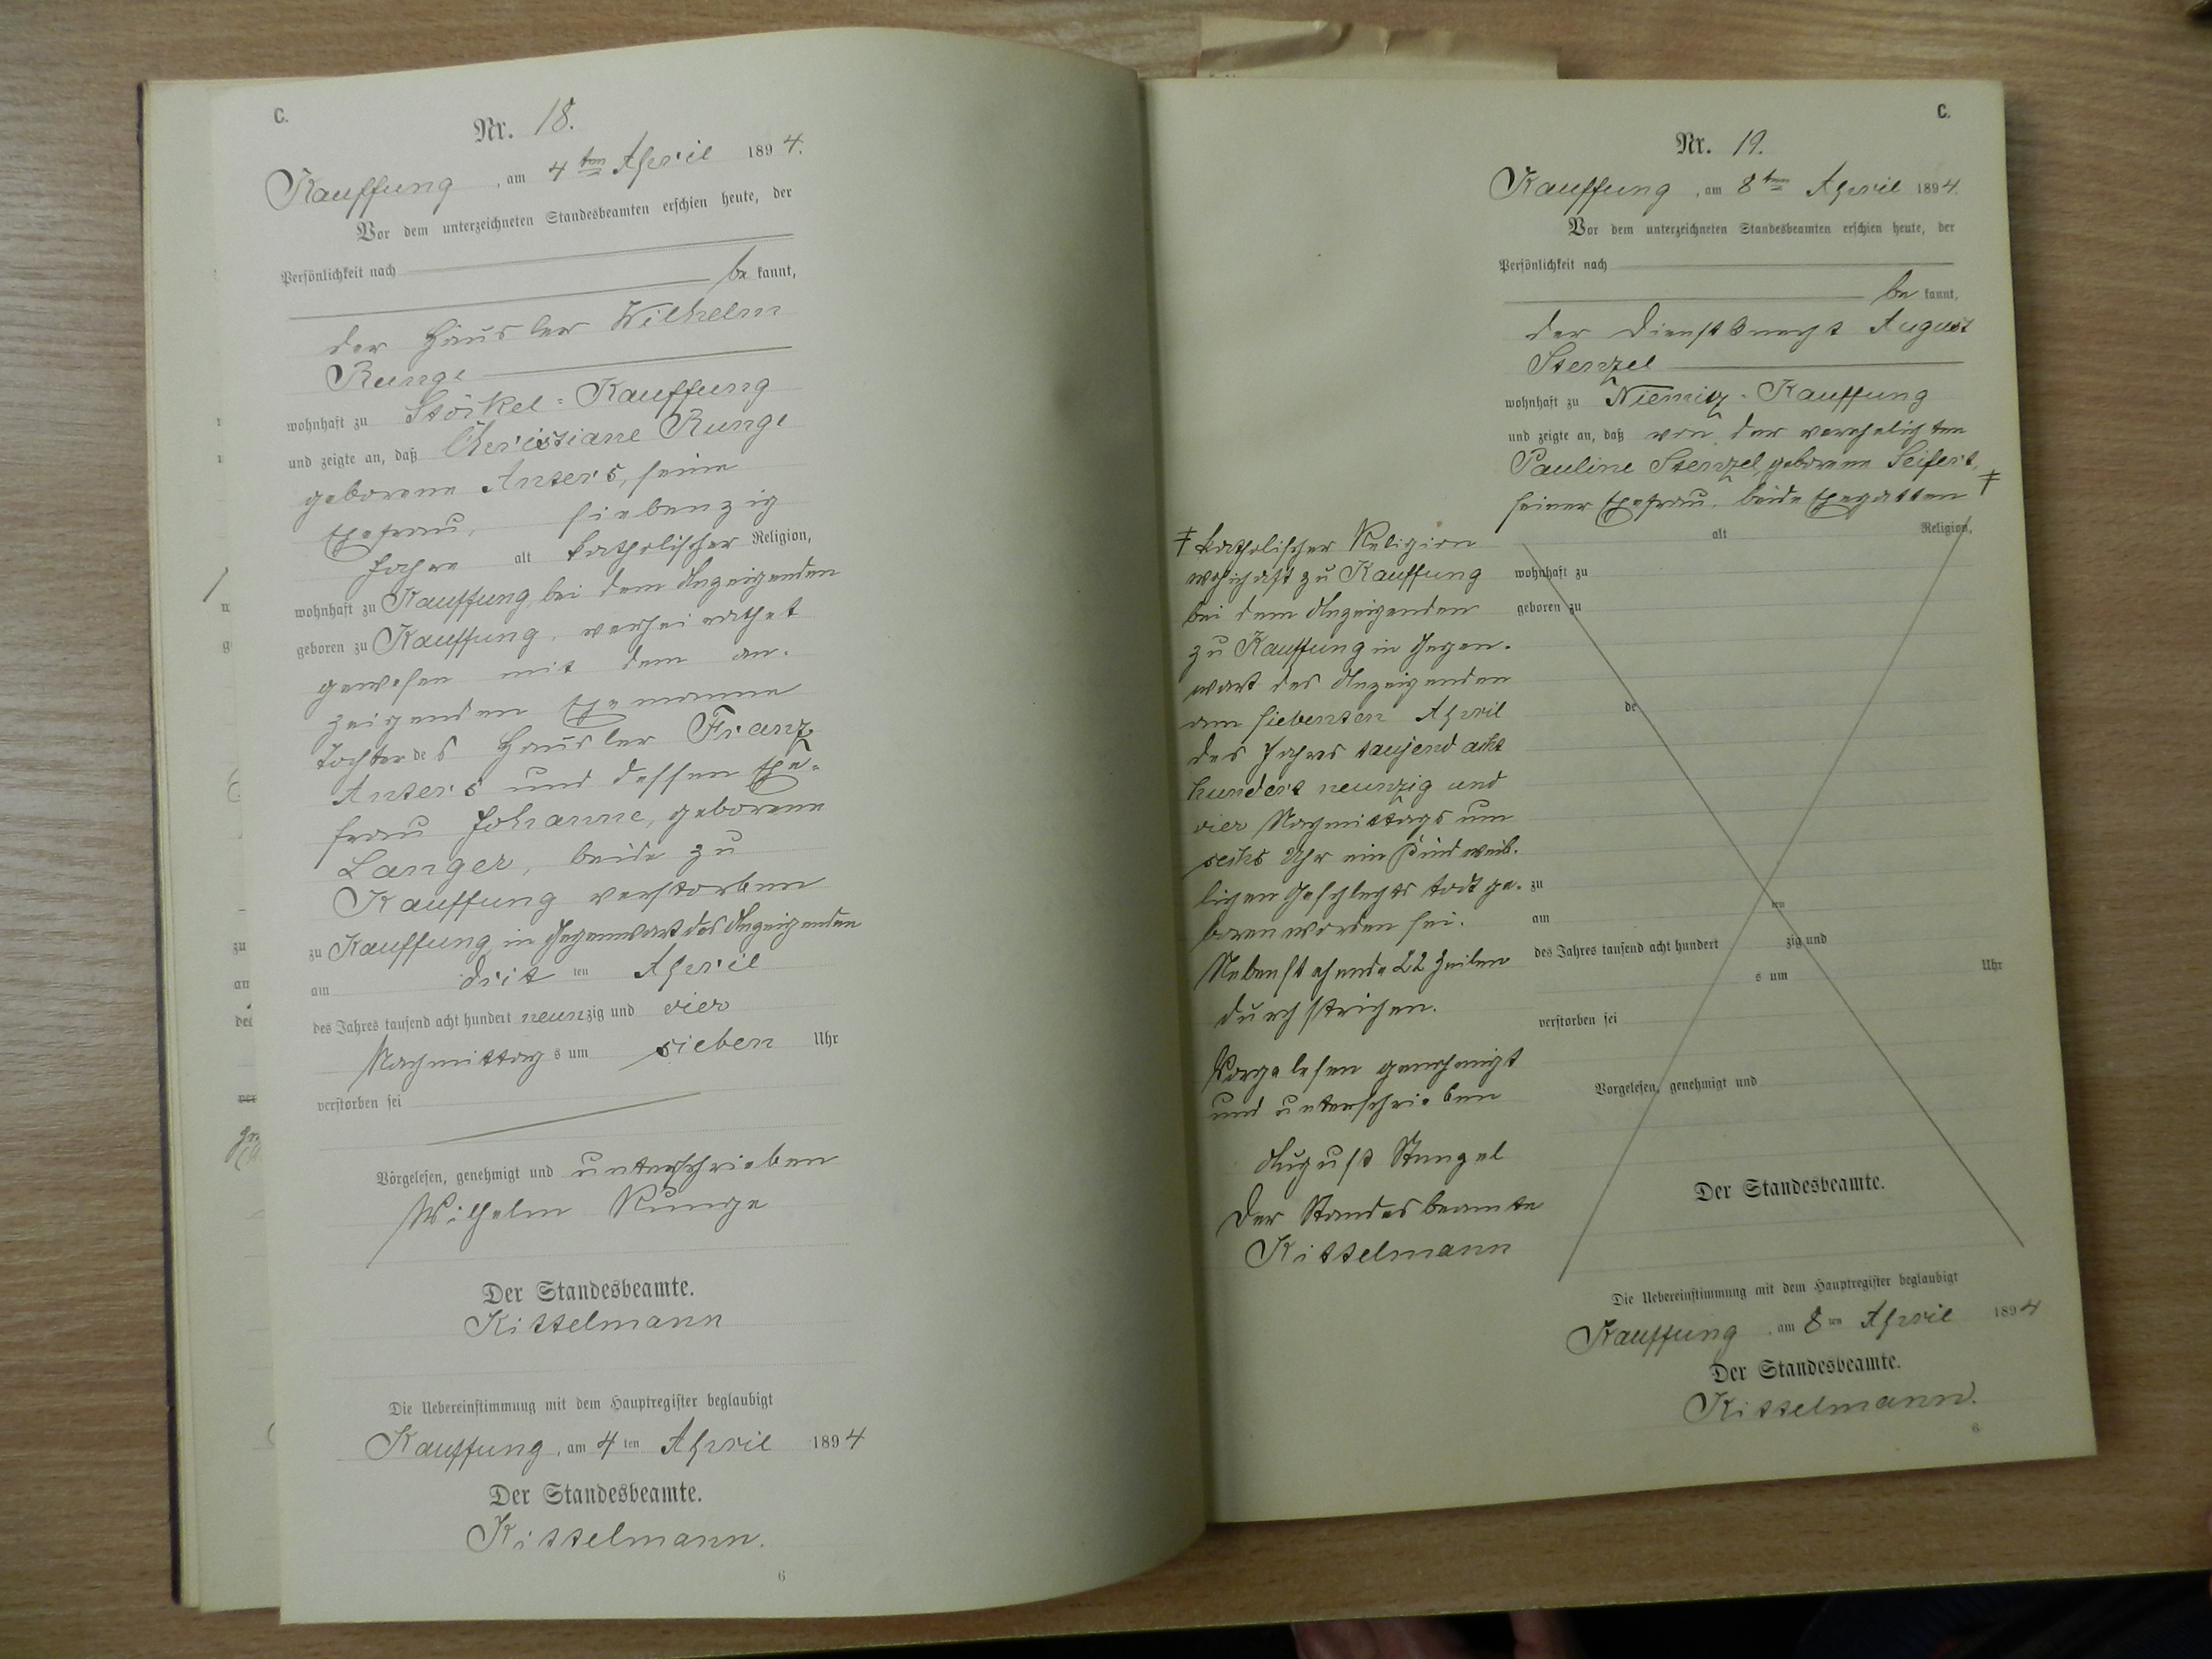 C.
Nr. 18.
Kauffung, am 4ten April 1894.
Vor dem unterzeichneten Standesbeamten erschien heute, der
Persönlichkeit nach
be kannt,
der Häusler Wilhelm
Runge
wohnhaft zu Stöckel-Kauffung
und zeigte an, daß Christiane Runge
geborene Anters, seine
Ehefrau, siebenzig
Jahre alt katholischer Religion,
wohnhaft zu Kauffung, bei dem Anzeigenden
geboren zu Kauffung, verheirathet
gewesen mit dem an-
zeigenden Ehemanne
Tochter des Häusler Franz
Anters und dessen Ehe-
frau Johanne, geborene
Langer, beide zu
Kauffung verstorben
zu Kauffung, in Gegenwart des Anzeigenden
am dritten April
des Jahres tausend acht hundert neunzig und vier
Nachmittags um sieben Uhr
verstorben sei
Vorgelesen, genehmigt und unterschrieben
Wilhelm Runge
Der Standesbeamte.
Kittelmann
Die Uebereinstimmung mit dem Hauptregister beglaubigt
Kauffung, am 4ten April 1894
Der Standesbeamte.
Kittelmann.
6
C.
Nr. 19.
Kauffung, am 8ten April 1894.
Vor dem unterzeichneten Standesbeamten erschien heute, der
Persönlichkeit nach
be kannt,
der Dienstknecht August
Stenzel
wohnhaft zu Niemitz-Kauffung
und zeigte an, daß von der verehelichten
Pauline Stenzel, geborene Seifert,
seiner Ehefrau, beide Ehegatten ‡
alt Religion,
wohnhaft zu
geboren zu
de
zu
am ten
des Jahres tausend acht hundert zig und
s um Uhr
verstorben sei
Vorgelesen, genehmigt und
Der Standesbeamte.
‡ katholischer Religion
wohnhaft zu Kauffung
bei dem Anzeigenden
zu Kauffung in Gegen-
wart des Anzeigenden
am siebenten April
des Jahres tausend acht
hundert neunzig und
vier Nachmittags um
sechs Uhr ein Kind weib-
lichen Geschlechts todt ge-
boren worden sei.
Nebenstehende 22 Zeilen
durchstrichen.
Vorgelesen genehmigt
und unterschrieben
August Stenzel
Der Standesbeamte
Kittelmann
Die Uebereinstimmung mit dem Hauptregister beglaubigt
Kauffung, am 8ten April 1894
Der Standesbeamte.
Kittelmann.
6